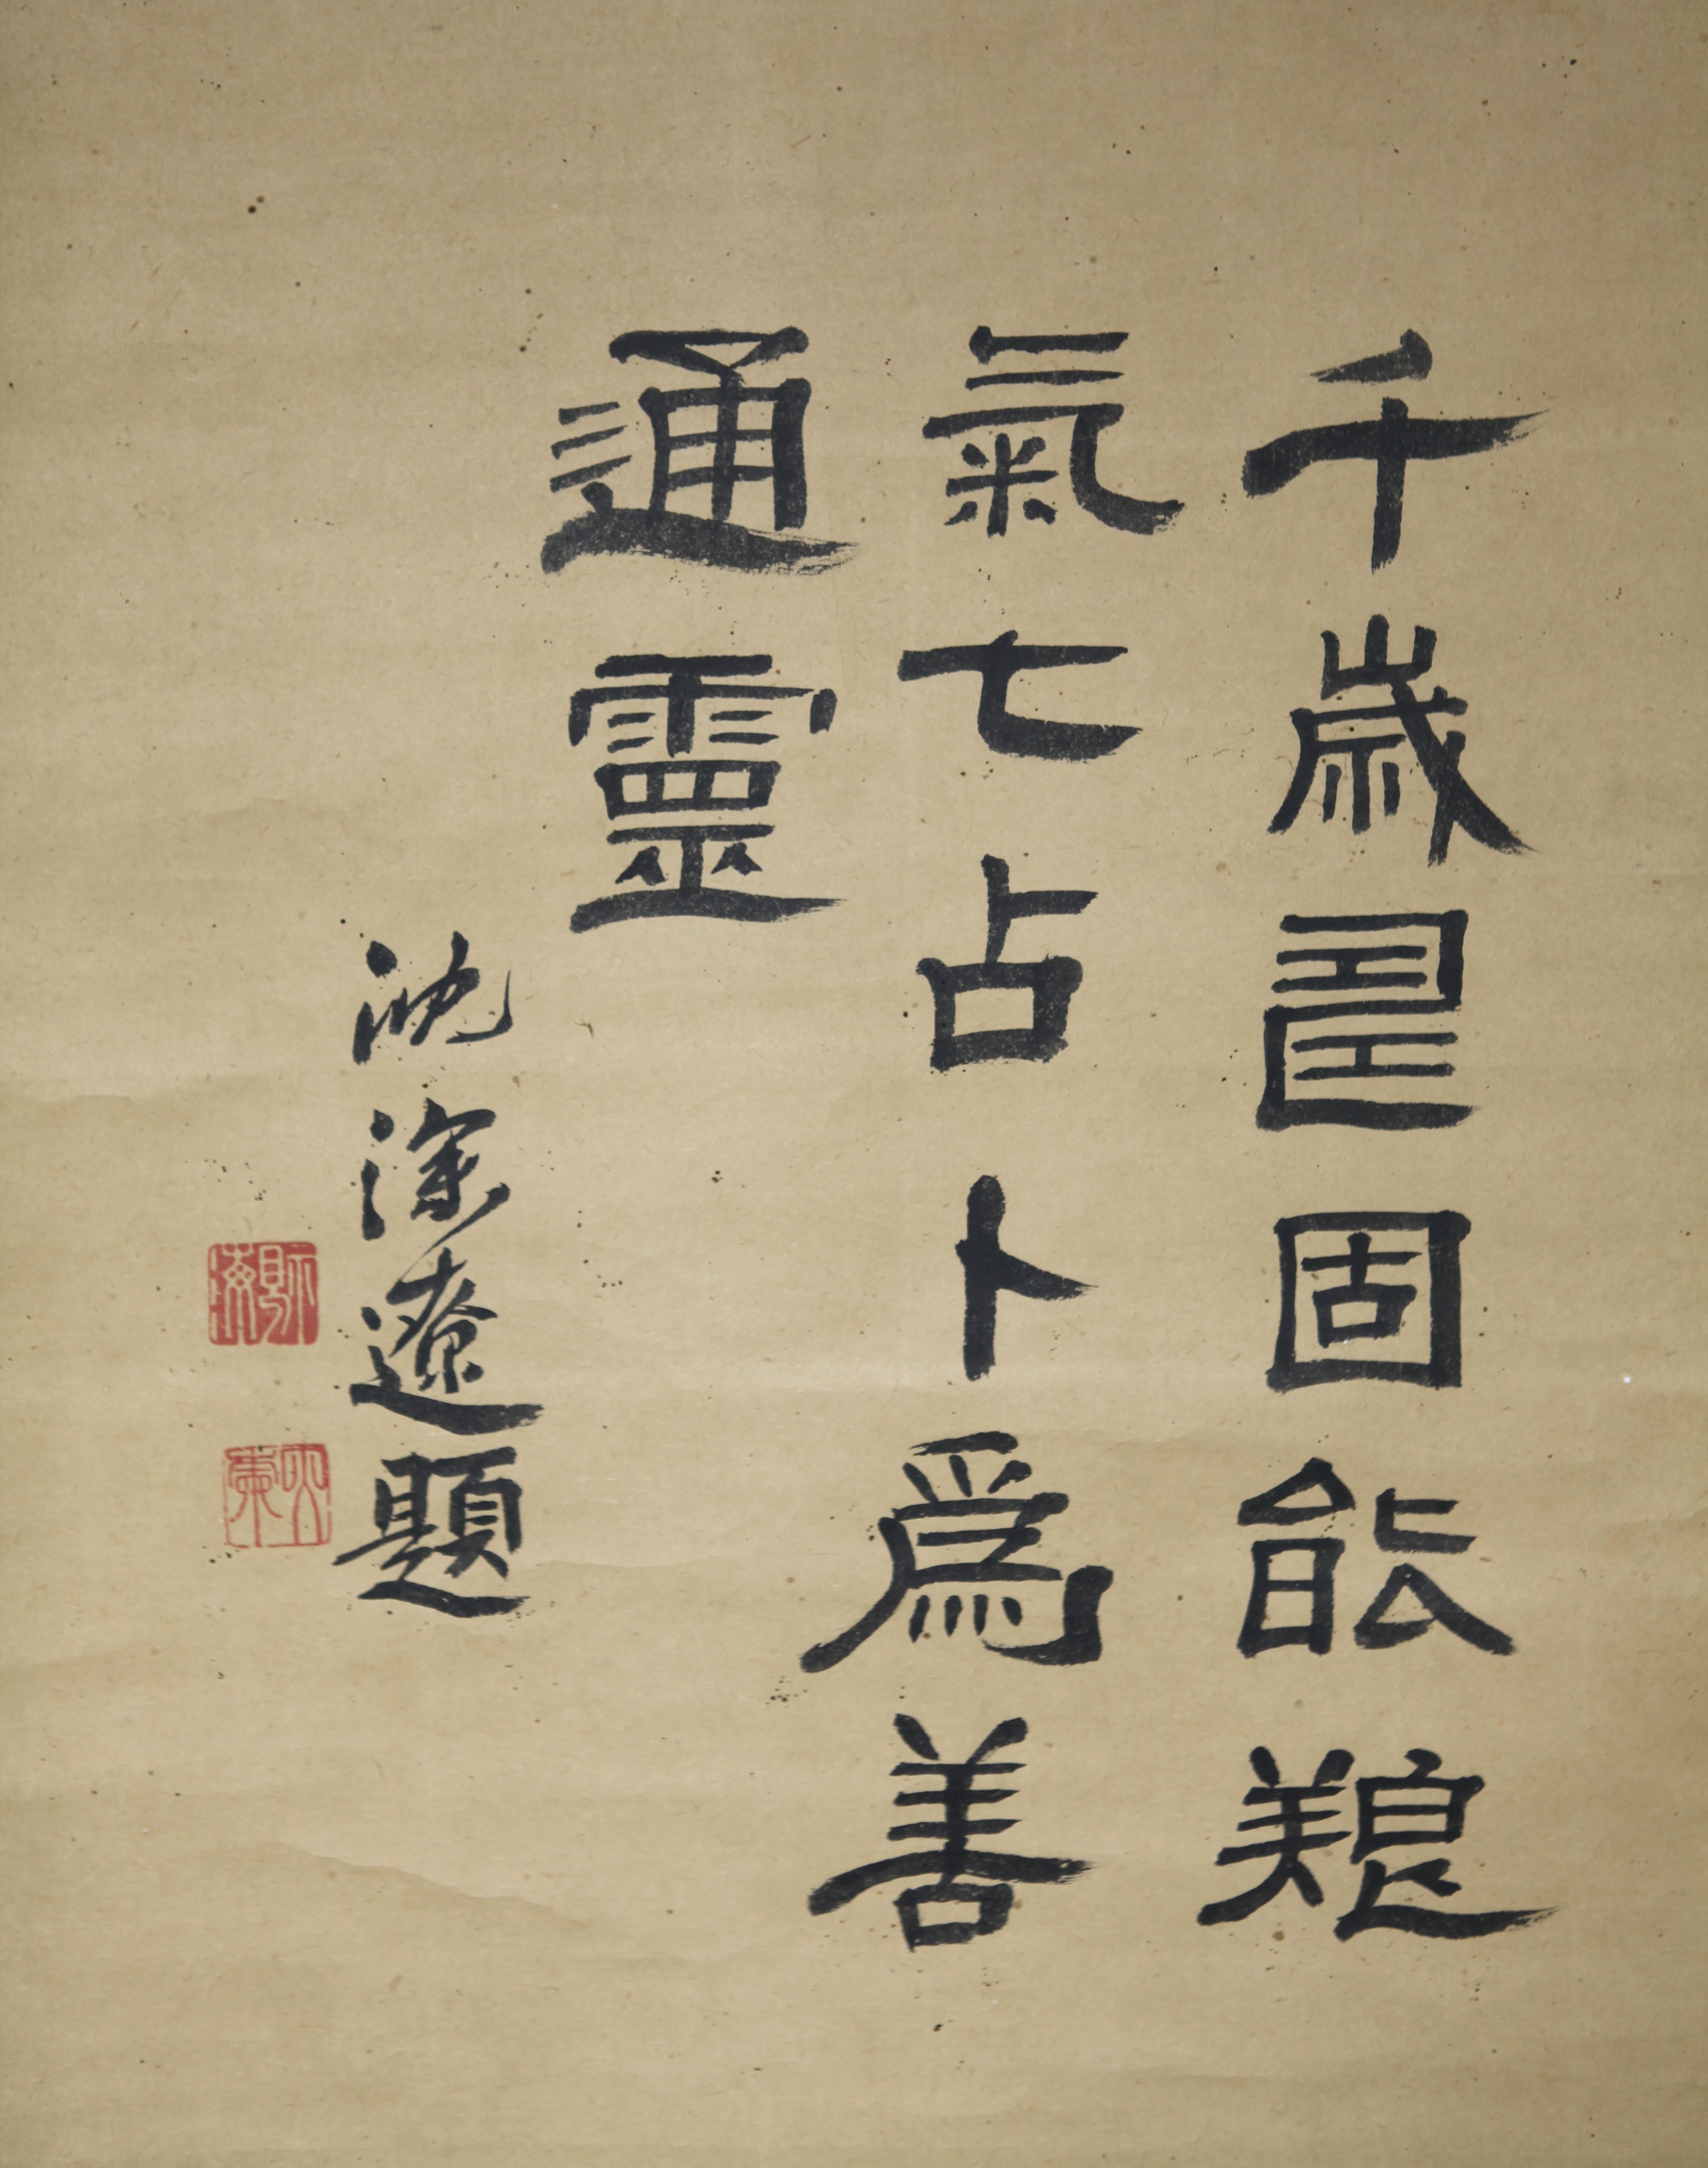 千歲固能養
氣七占卜爲善
通靈
沈深遼題